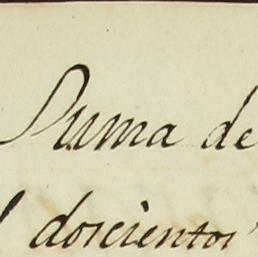 Suma de
doscientos